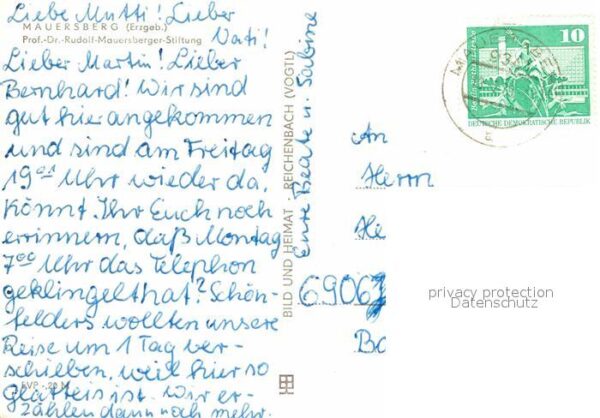 Liebe Mutti! Lieber
MAUERSBERG (Erzgeb.)
Vati!
Prof.-Dr.-Rudolf-Mauersberger-Stiftung
Lieber Martin! Lieber
Bernhard! Wir sind
gut hier angekommen
und sind am Freitag
19⁰¹ Uhr wieder da.
Könnt Ihr Euch noch
errinnern, daß Montag
7⁰⁰ Uhr das Telephon
geklingelt hat? Schön-
felders wollten unsere
Reise um 1 Tag ver-
schieben, weil hier so
Glatteis ist. Wir er-
zählen dann noch mehr.
EVP -,20 M
Eure Beate u. Sabine
BILD UND HEIMAT · REICHENBACH (VOGTL)
10
DEUTSCHE DEMOKRATISCHE REPUBLIK
An
Herrn
He
69067
Bo
privacy protection
Datenschutz